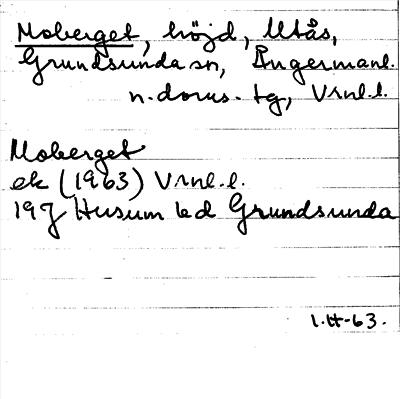 Moberget, höjd, Utås,
Grundsunda sn, Ångermanl.
n. doms. tg, Vrnl. l.
Moberget
ek (1963) Vrnl. l.
19J Husum bd Grundsunda